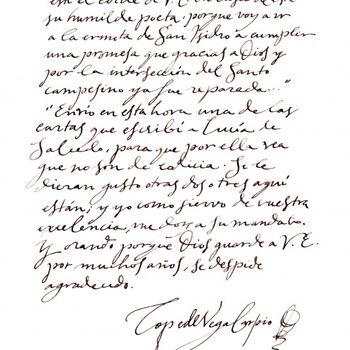 su humilde poeta, porque voy a ir
a la ermita de San Isidro a cumplir
una promesa que gracias a Dios y
por la intersección del Santo
campesino ya fue reparada..."
"Envío en esta hora una de las
cartas que escribí a Lucía de
Salcedo, para que por ella vea
que no son de codicia. Si le
dieran gusto otras dos o tres aquí
están; y yo como siervo de vuestra
excelencia, me doy a su mandato.
Y orando porque Dios guarde a V. E.
por muchos años, se despide
agradecido.
Lope de Vega Carpio